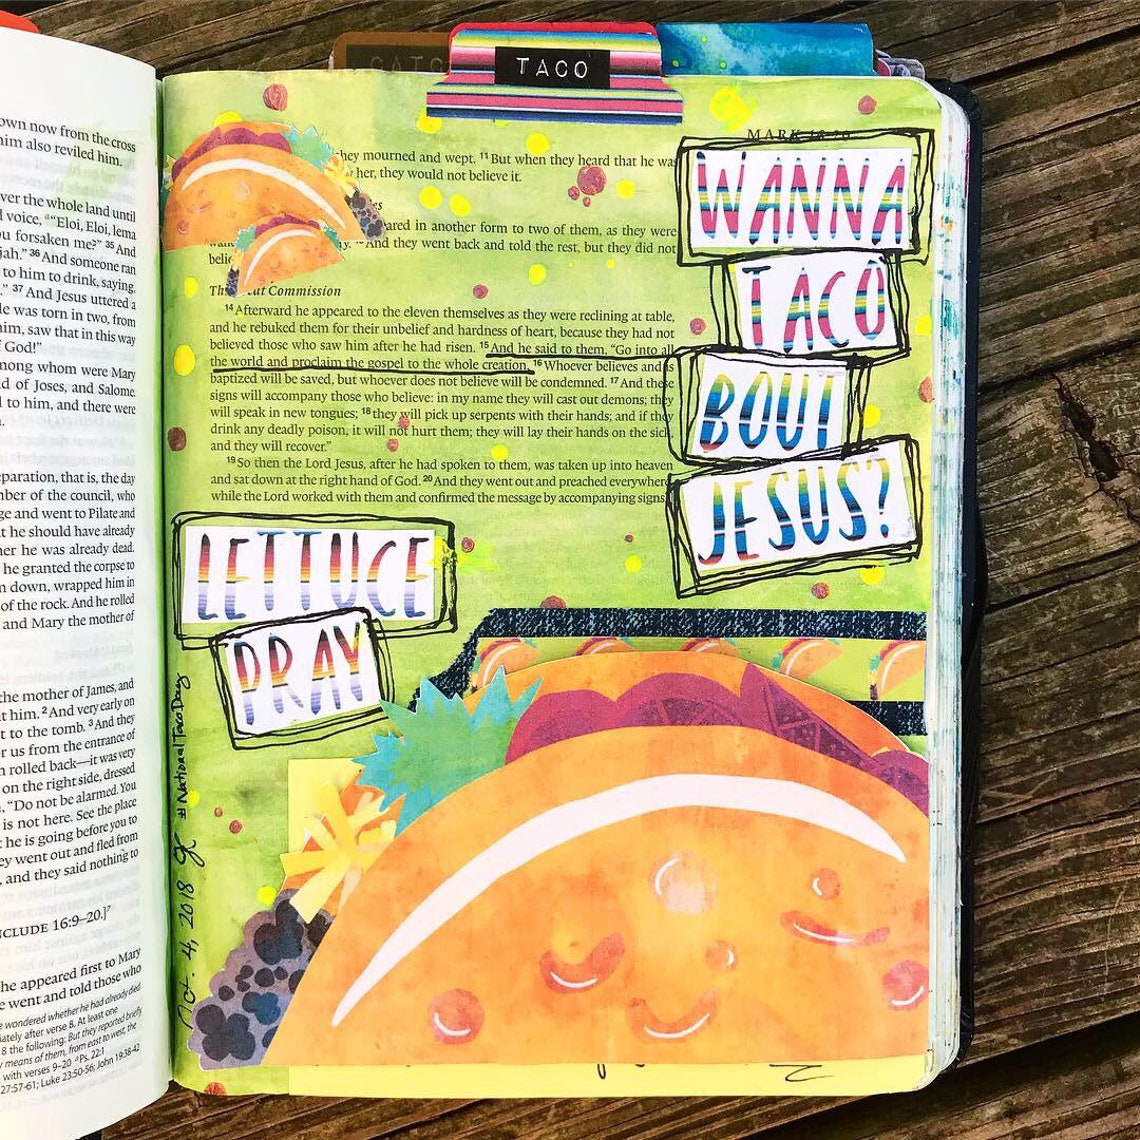 CATC
TACO
own now from the cross
him also reviled him.
ver the whole land until
d voice, "Eloi, Eloi, lema
u forsaken me?" 35 And
jah." 36 And someone ran
to him to drink, saying,
." 37 And Jesus uttered a
le was torn in two, from
him, saw that in this way
f God!"
mong whom were Mary
d of Joses, and Salome.
d to him, and there were
eparation, that is, the day
mber of the council, who
ge and went to Pilate and
t he should have already
her he was already dead.
he granted the corpse to
n down, wrapped him in
of the rock. And he rolled
and Mary the mother of
the mother of James, and
t him. 2 And very early on
t to the tomb. 3 And they
r us from the entrance of
n rolled back—it was very
on the right side, dressed
. "Do not be alarmed. You
is not here. See the place
t he is going before you to
ey went out and fled from
, and they said nothing to
NCLUDE 16:9–20.]7
he appeared first to Mary
e went and told those who
e wondered whether he had already died
iately after verse 8. At least one
8 the following: But they reported briefly
y means of them, from east to west, the
with verses 9–20. Ps. 22:1
27:57-61; Luke 23:50-56; John 19:38-42
MARK 16:20
they mourned and wept. 11 But when they heard that he was
her, they would not believe it.
es
eared in another form to two of them, as they were
y. And they went back and told the rest, but they did not
belie
Th at Commission
14 Afterward he appeared to the eleven themselves as they were reclining at table,
and he rebuked them for their unbelief and hardness of heart, because they had not
believed those who saw him after he had risen. 15 And he said to them, "Go into all
the world and proclaim the gospel to the whole creation. 16 Whoever believes and is
baptized will be saved, but whoever does not believe will be condemned. 17 And these
signs will accompany those who believe: in my name they will cast out demons; they
will speak in new tongues; 18 they will pick up serpents with their hands; and if they
drink any deadly poison, it will not hurt them; they will lay their hands on the sick,
and they will recover."
19 So then the Lord Jesus, after he had spoken to them, was taken up into heaven
and sat down at the right hand of God. 20 And they went out and preached everywhere,
while the Lord worked with them and confirmed the message by accompanying signs.
WANNA
TACO
BOUT
JESUS?
LETTUCE
PRAY
Oct. 4, 2018 #NationalTacoDay